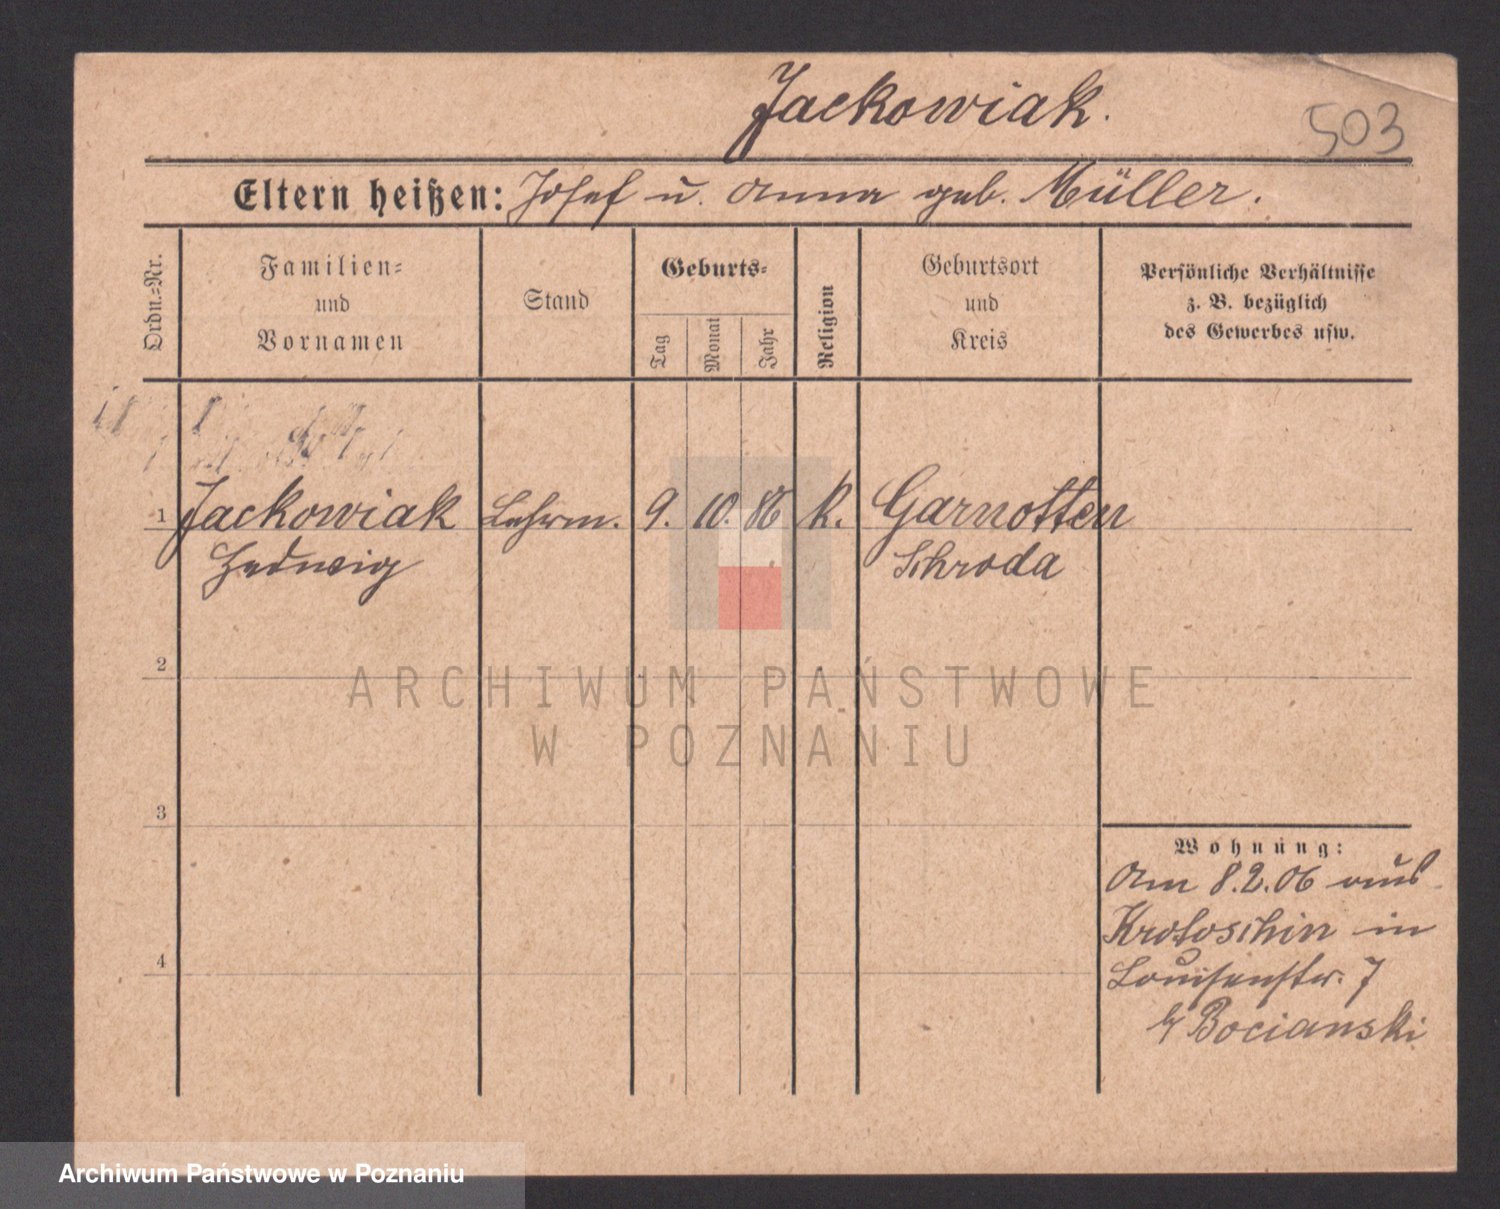 Jackowiak.
503
Eltern heißen: Josef u. Anna geb. Müller.
Ordn.=Nr.
Familien=
und
Vornamen
Stand
Geburts=
Tag
Monat
Jahr
Religion
Geburtsort
und
Kreis
Persönliche Verhältnisse
z. B. bezüglich
des Gewerbes usw.
1 Jackowiak Lehrm. 9. 10. 86 K. Garnotten
Hedwig Schroda
2
ARCHIWUM PAŃSTWOWE
W POZNANIU
3
Wohnung:
Am 8.2.06 aus
Krotoschin in
4
Louisenstr. 7
b/ Bocianski
Archiwum Państwowe w Poznaniu